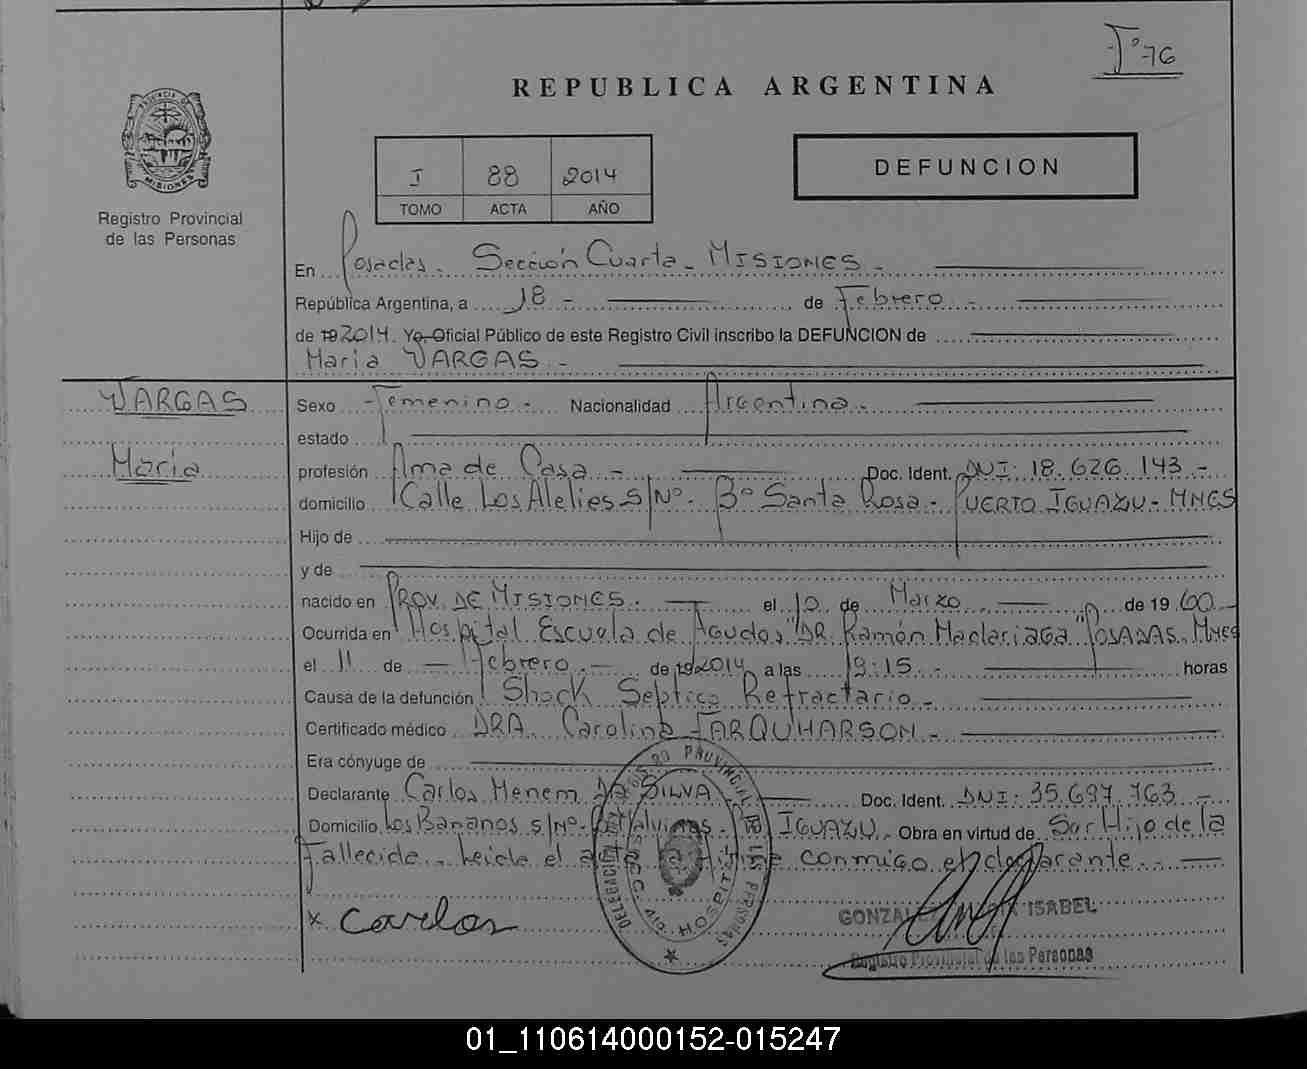 Iº 76
REPUBLICA ARGENTINA
PROVINCIA DE
MISIONES
Registro Provincial
de las Personas
I 88 2014
TOMO ACTA AÑO
DEFUNCION
En Posadas. Sección Cuarta - MISIONES -
República Argentina, a 18 - de Febrero -
de 19 2014. Yo, Oficial Público de este Registro Civil inscribo la DEFUNCION de
Maria VARGAS -
VARGAS
Maria
Sexo Femenino - Nacionalidad Argentina -
estado
profesión Ama de Casa - Doc. Ident. DNI: 18.626.143 -
domicilio Calle Los Alelies S/Nº - Bº Santa Rosa - PUERTO IGUAZU - MNES
Hijo de
y de
nacido en PROV. DE MISIONES. el 10 de Marzo de 19 60 -
Ocurrida en Hospital Escuela de Agudos "DR. Ramón Madariaga" POSADAS. MNES
el 11 de - Febrero. - de 19 2014 a las 19:15 - horas
Causa de la defunción Shock Septico Refractario -
Certificado médico DRA. Carolina FARQUHARSON -
Era cónyuge de
Declarante Carlos Menem DA SILVA Doc. Ident. DNI: 35.697.763 -
Domicilio Los Bananos S/Nº - Malvinas - IGUAZU. Obra en virtud de Ser Hijo de la
fallecida. Leida el acta la firma conmigo el declarante. -
x Carlos
DELEGACION REGISTRO PROVINCIAL DE LAS PERSONAS
SECC. 4º HOSPITAL
ISABEL
Registro Provincial de las Personas
01_110614000152-015247